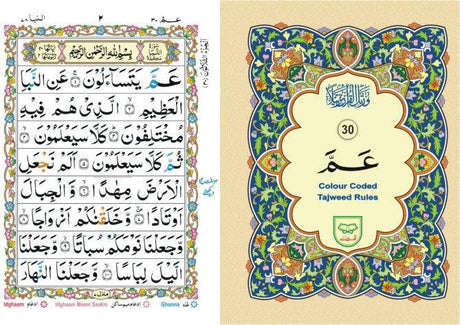 النبا ٧٨
٢
عمّ ٣٠
بِسْمِ اللّٰهِ الرَّحْمٰنِ الرَّحِيْمِ
عَمَّ يَتَسَآءَلُوْنَ ۝١ عَنِ النَّبَاِ
الْعَظِيْمِ ۝٢ الَّذِىْ هُمْ فِيْهِ
مُخْتَلِفُوْنَ ۝٣ كَلَّا سَيَعْلَمُوْنَ ۝٤
ثُمَّ كَلَّا سَيَعْلَمُوْنَ ۝٥ اَلَمْ نَجْعَلِ
الْاَرْضَ مِهٰدًا ۝٦ وَّالْجِبَالَ
اَوْتَادًا ۝٧ وَّخَلَقْنٰكُمْ اَزْوَاجًا ۝٨
وَّجَعَلْنَا نَوْمَكُمْ سُبَاتًا ۝٩ وَّجَعَلْنَا
الَّيْلَ لِبَاسًا ۝١٠ وَّجَعَلْنَا النَّهَارَ
Idghaam ادغام
Idghaam Meem Saakin ادغام میم ساکن
Ghunna غنہ
وَرَتِّلِ الْقُرْاٰنَ تَرْتِيْلًا
30
عَمَّ
Colour Coded
Tajweed Rules